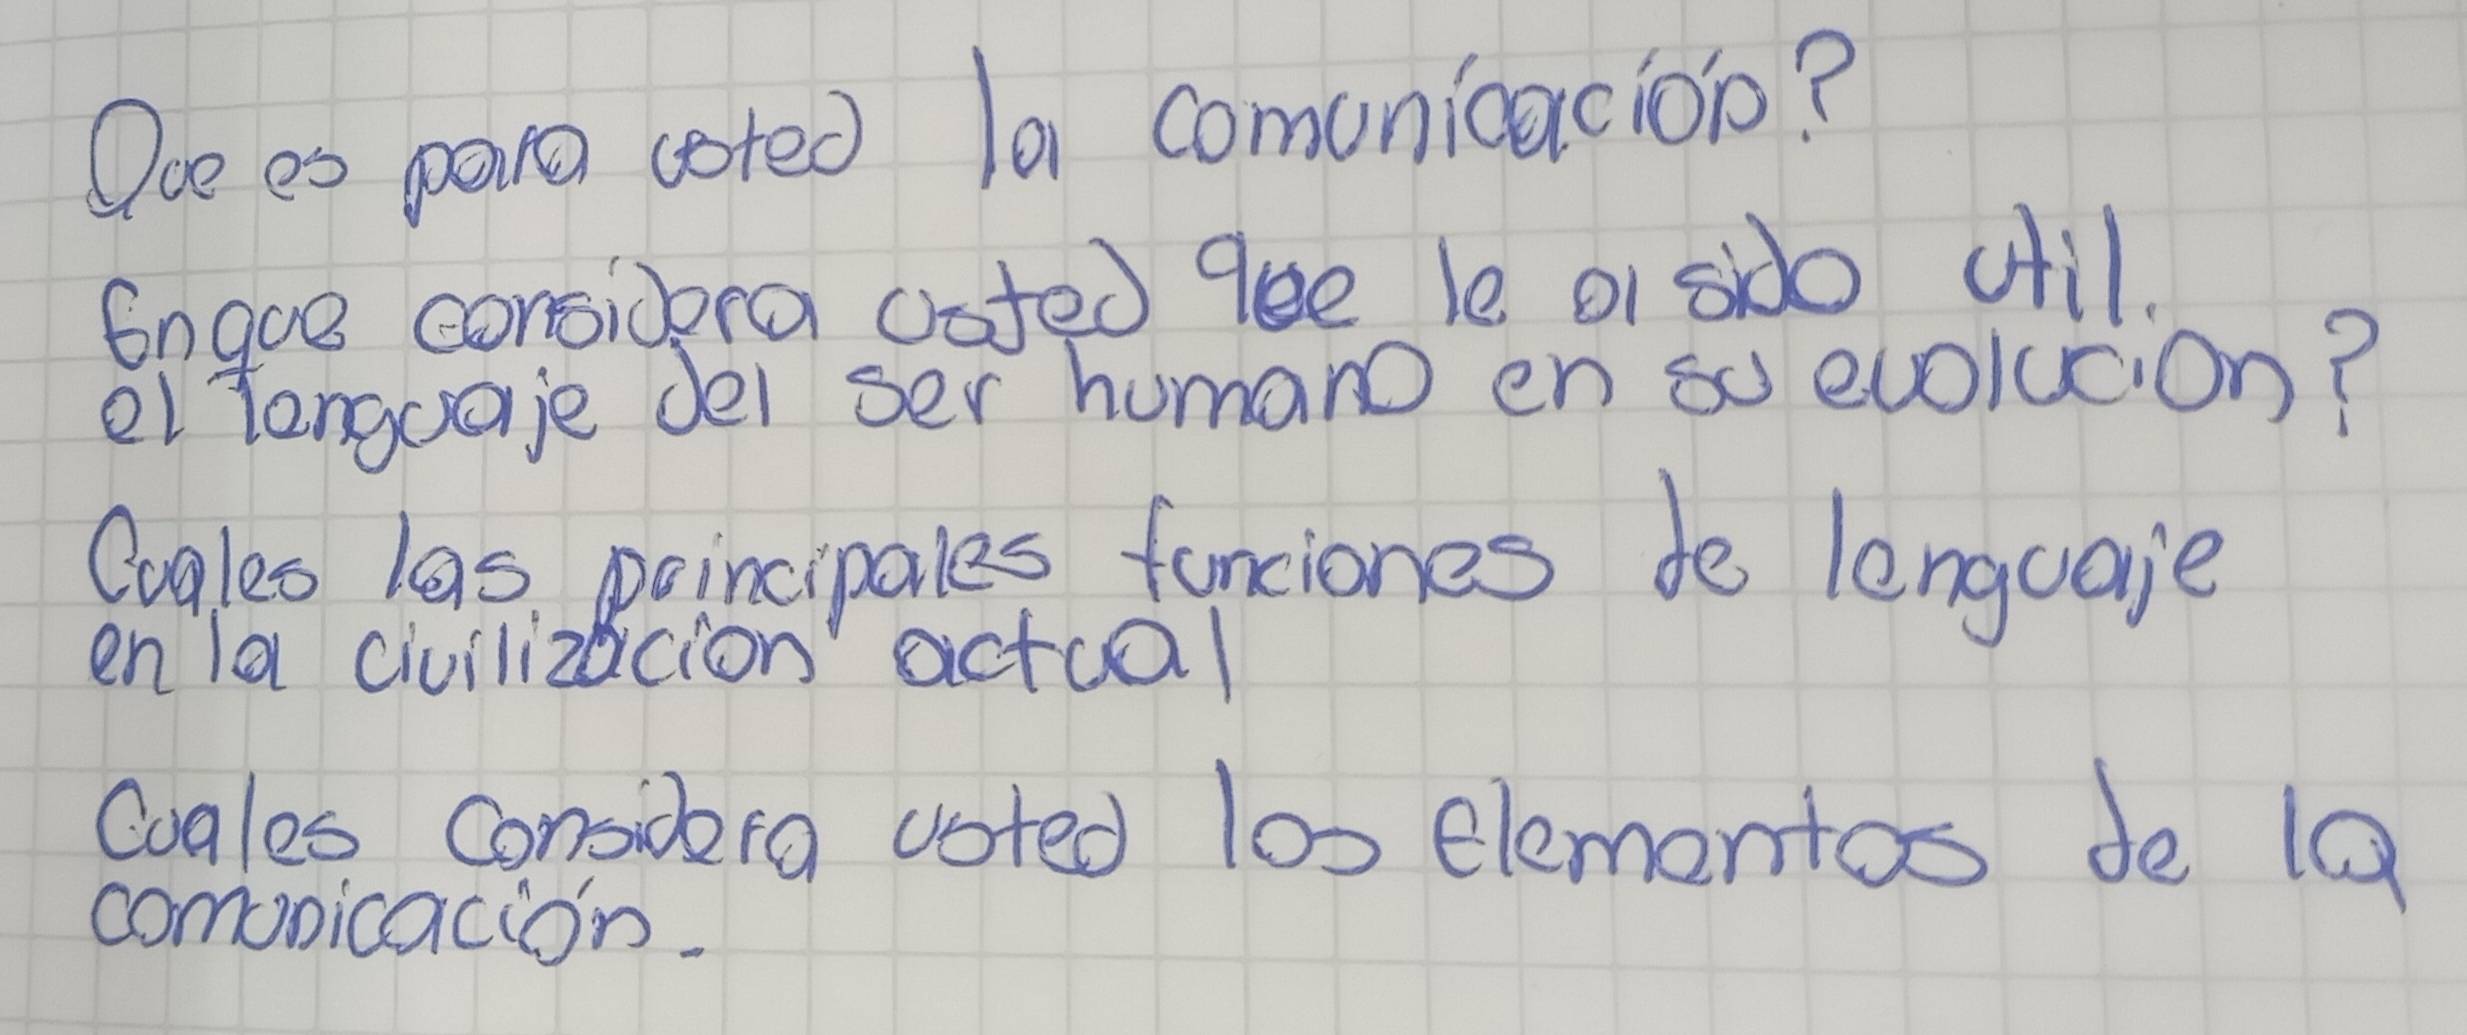 Que es para usted la comunicación?
Enque considera usted que le a sido util.
el lenguaje del ser humano en su evolución?
Cuales las principales funciones de lenguaje
en la civilizacion actual
Cuales considera usted los elementos de la
comunicación.